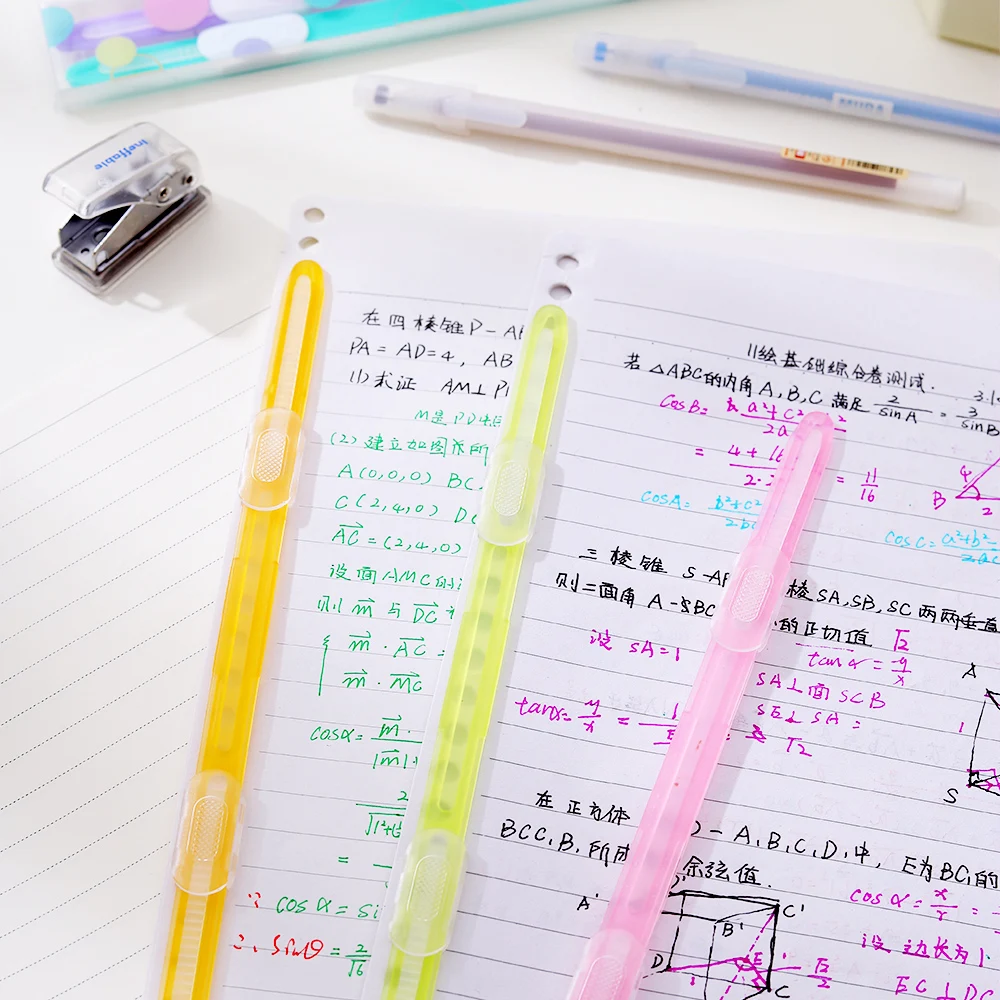 Ineffable
MUDA
在四棱锥P-A
PA=AD=4, AB
(1)求证 AM⊥P
M是PD中
(2)建立如图所
A(0,0,0) BC
C(2,4,0) D
AC=(2,4,0)
设面AMC的
则 m 与 DC
m·AC =
m·MC
cosα= m·
|m|·
2
=
∵ cosα = si
∴ sinθ = 2/√6
11绘基础综合卷测试. 3.1
若△ABC的内角A,B,C满足 2/sinA = 3/sinB
cosB= a²+c²
2a
= 4+16
2·2 = 11/16
4
B 2
cosA= b²+c²
2bc
cosC= a²+b²-
2ac
三棱锥 S-A 棱SA,SB,SC两两垂直
则二面角A-SBC 的正切值 √2
设 SA=1
tanα = y/x
SA⊥面SCB
SE⊥SA
tanα= y/x = 1 √2
A
1
S
在正方体 D-A₁B₁C₁D₁中, E为BC₁的
BCC₁B₁所成 余弦值.
cosα= x/r =
A' C'
B'
设边长为1.
D E √2/2
C
EC⊥DC